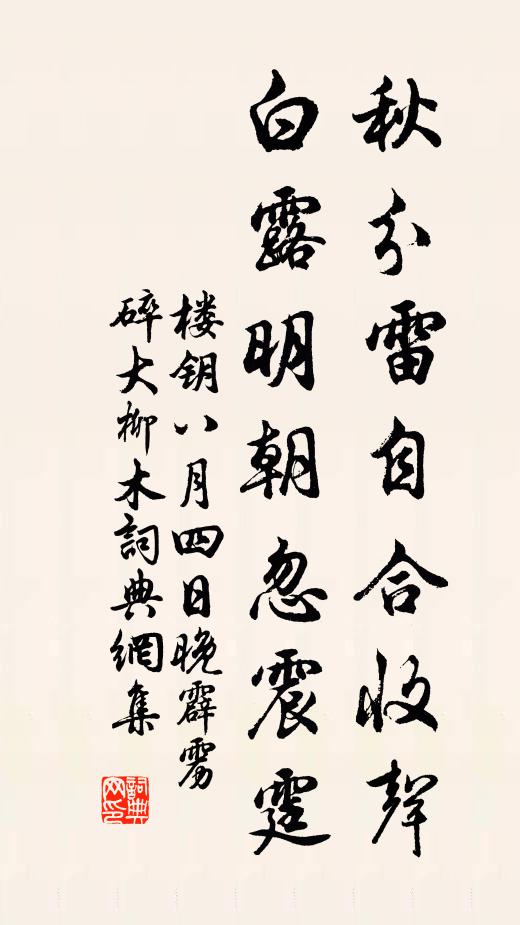 秋分雷自合收聲
白露明朝忽震霆
楼钥八月四日晚霹雳
碎大柳木詞典網集
詞典網印